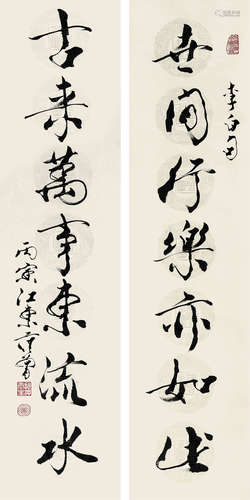 世间行樂亦如此
李白句
古来萬事東流水
丙寅江東范曾